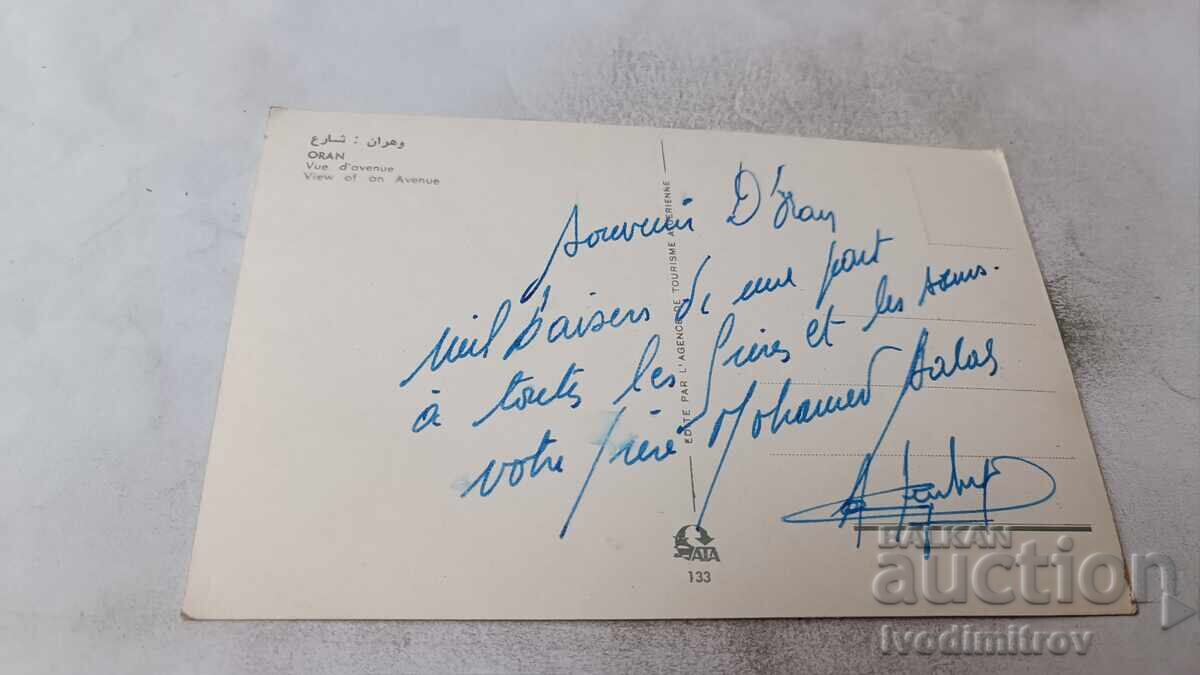 وهران : شارع
ORAN
Vue d'avenue
View of an Avenue
EDITE PAR L'AGENCE DE TOURISME ALGERIENNE
Souvenir D'Oran
Mil baisers de me part
à toutes les frères et les sœurs.
votre frère Mohamed
ATA
133
BALKAN
auction
Ivodimitrov